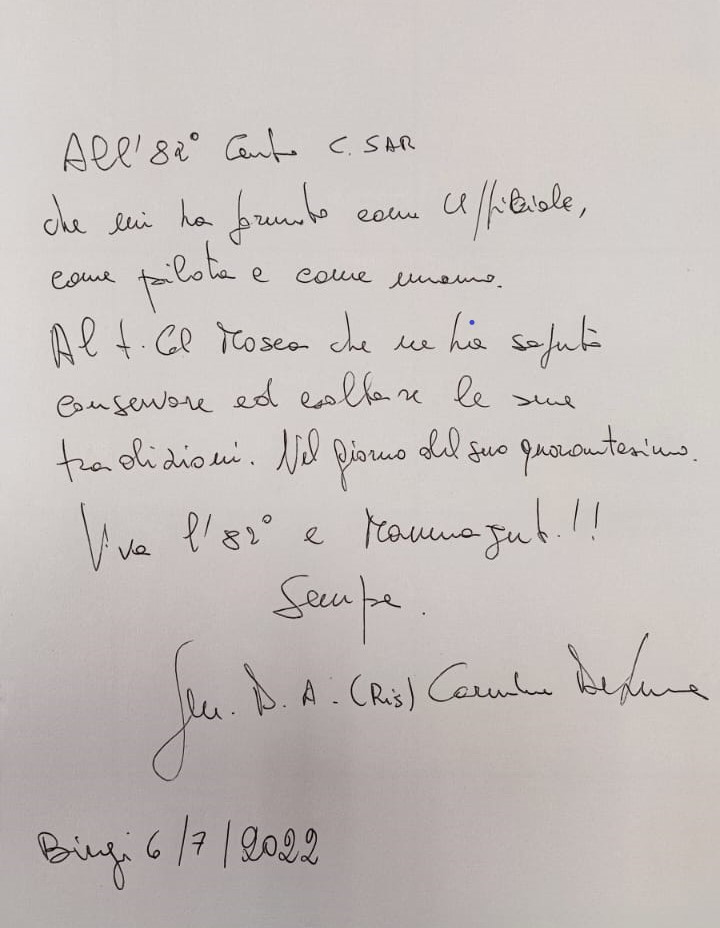 All'82° Centro C. SAR
che mi ha formato come Ufficiale,
come pilota e come uomo.
Al t. Col Mosca che ne ha saputo
conservare ed esaltare le sue
tradizioni. Nel giorno del suo quarantesimo.
Viva l'82° e Mammajut!!
Sempre.
Gen. D. A. (Ris)
Birgi 6/7/2022